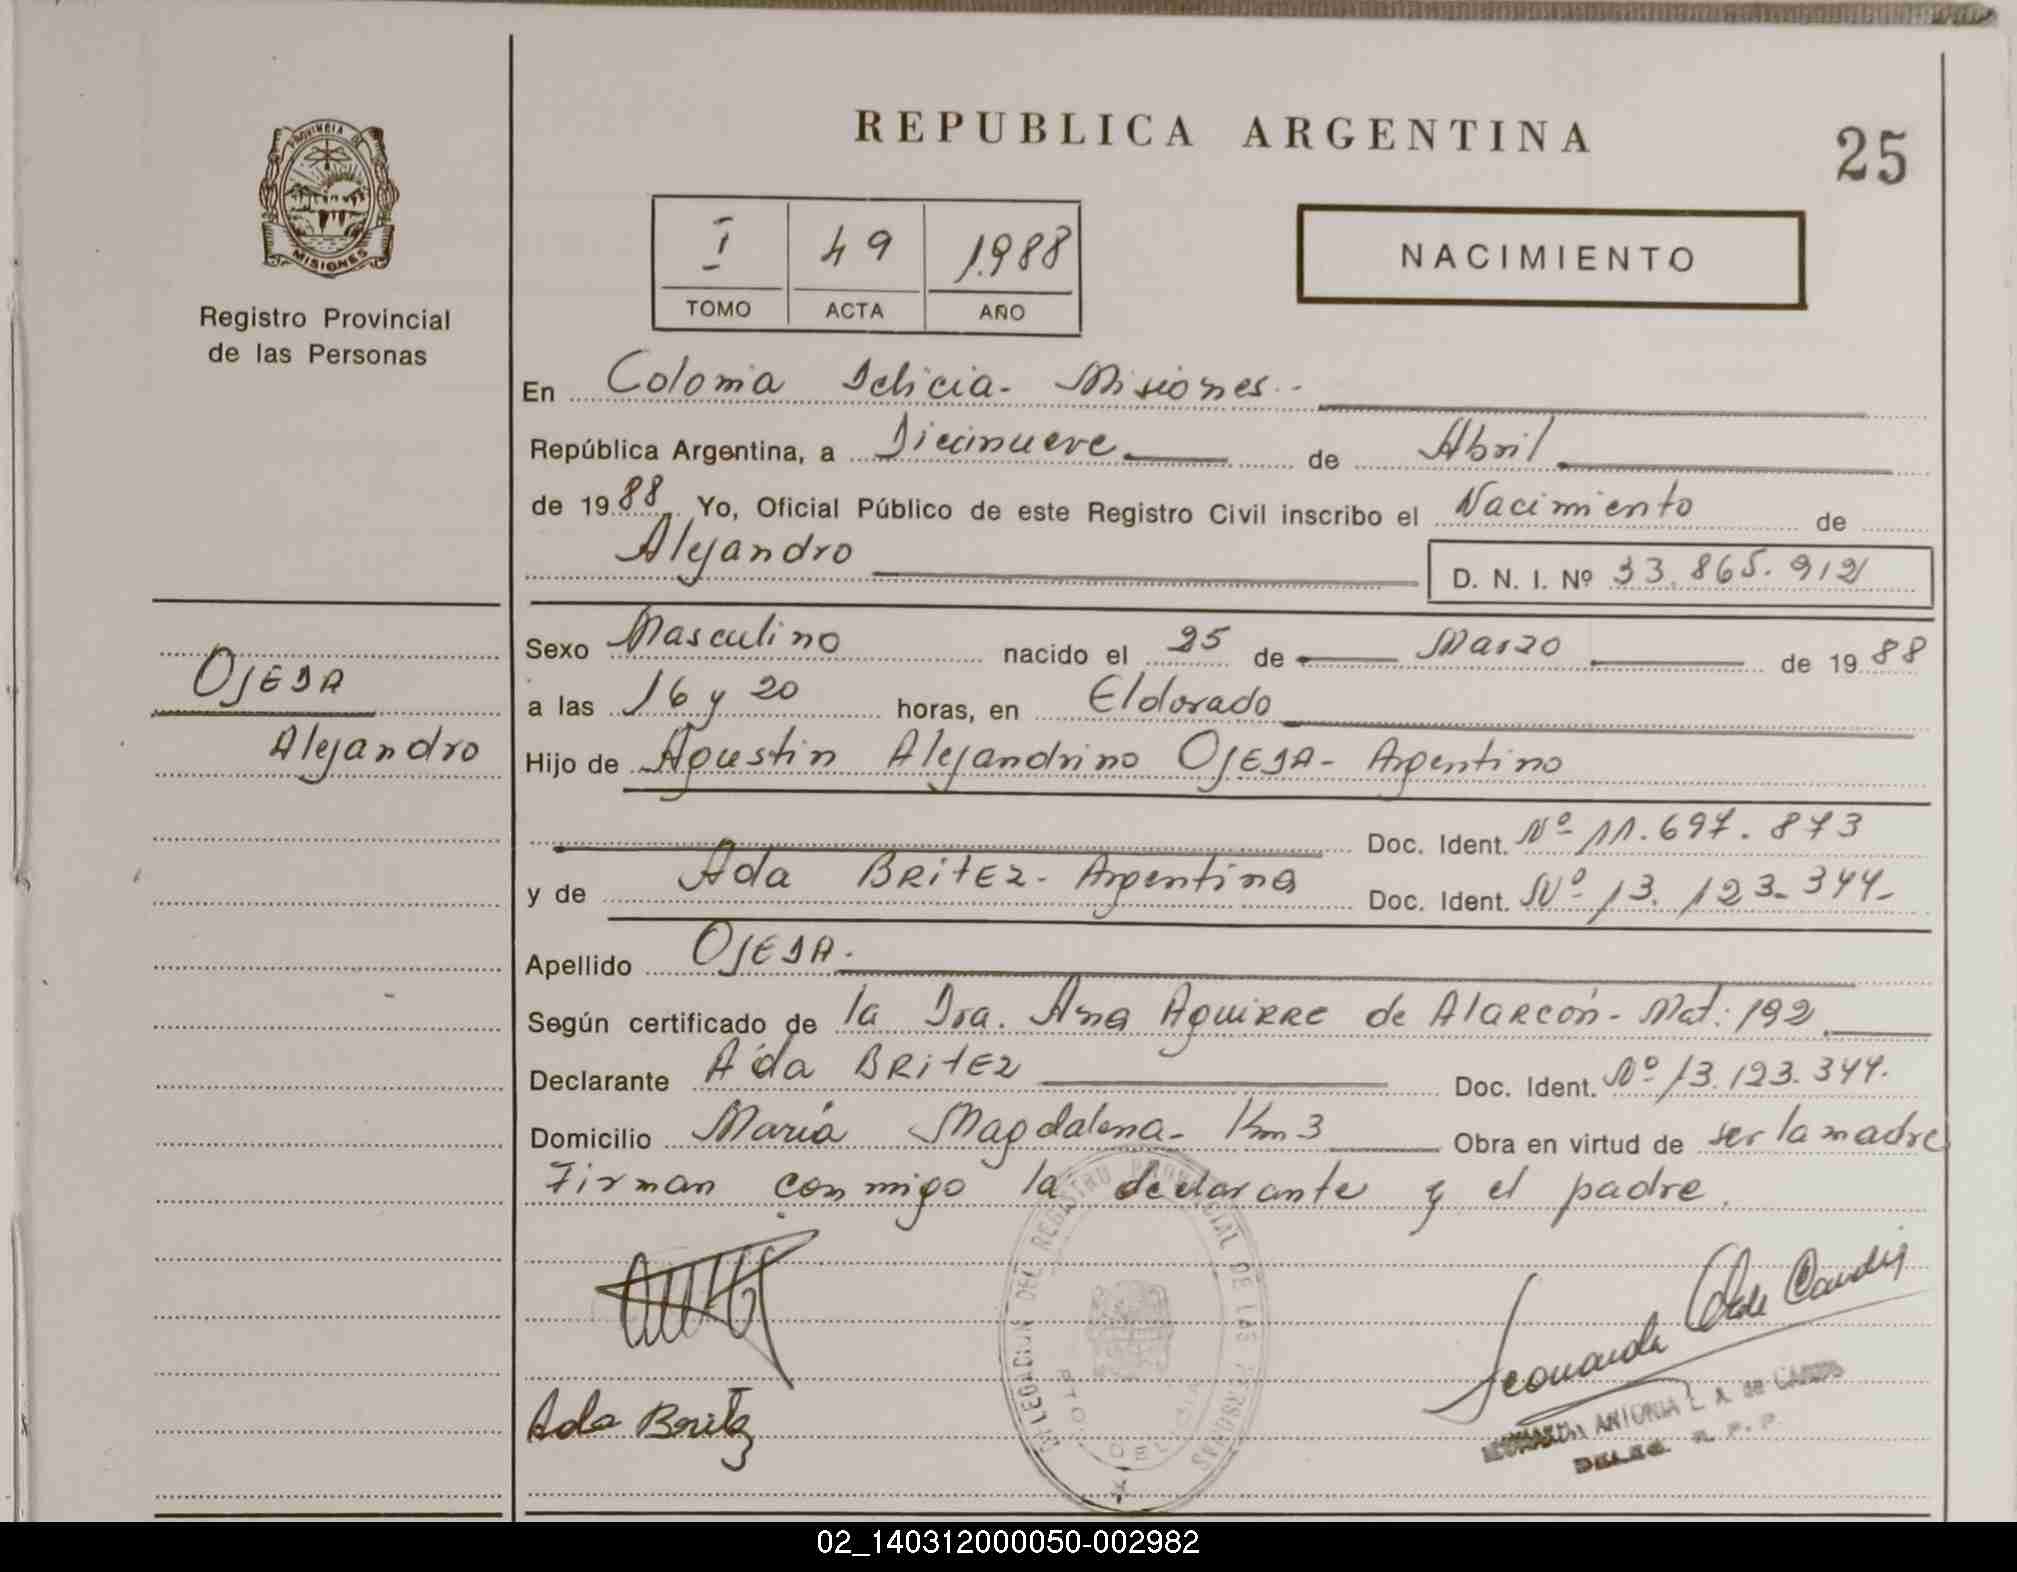 REPUBLICA ARGENTINA
25
PROVINCIA DE
MISIONES
Registro Provincial
de las Personas
I 49 1988
TOMO ACTA AÑO
NACIMIENTO
En Colonia Delicia - Misiones -
República Argentina, a Diecinueve de Abril
de 1988 Yo, Oficial Público de este Registro Civil inscribo el Nacimiento de
Alejandro D. N. I. Nº 33.865.912
Sexo Masculino nacido el 25 de Marzo de 1988
OJEDA
a las 16 y 20 horas, en Eldorado
Alejandro
Hijo de Agustin Alejandrino OJEDA - Argentino
Doc. Ident. Nº 11.697.873
y de Ada BRITEZ - Argentina Doc. Ident. Nº 13.123.344-
Apellido OJEDA.
Según certificado de la Dra. Ana AguiRRe de AlaRcón - Mat: 192
Declarante Ada BRITEZ Doc. Ident. Nº 13.123.344.
Domicilio María Magdalena - Km 3 Obra en virtud de ser la madre
Firman conmigo la declarante y el padre.
DELEGACION DEL REGISTRO PROVINCIAL DE LAS PERSONAS
PTO. DELICIA
Ada Britez
ANTONIA L. A. de
R. P. P.
02_140312000050-002982